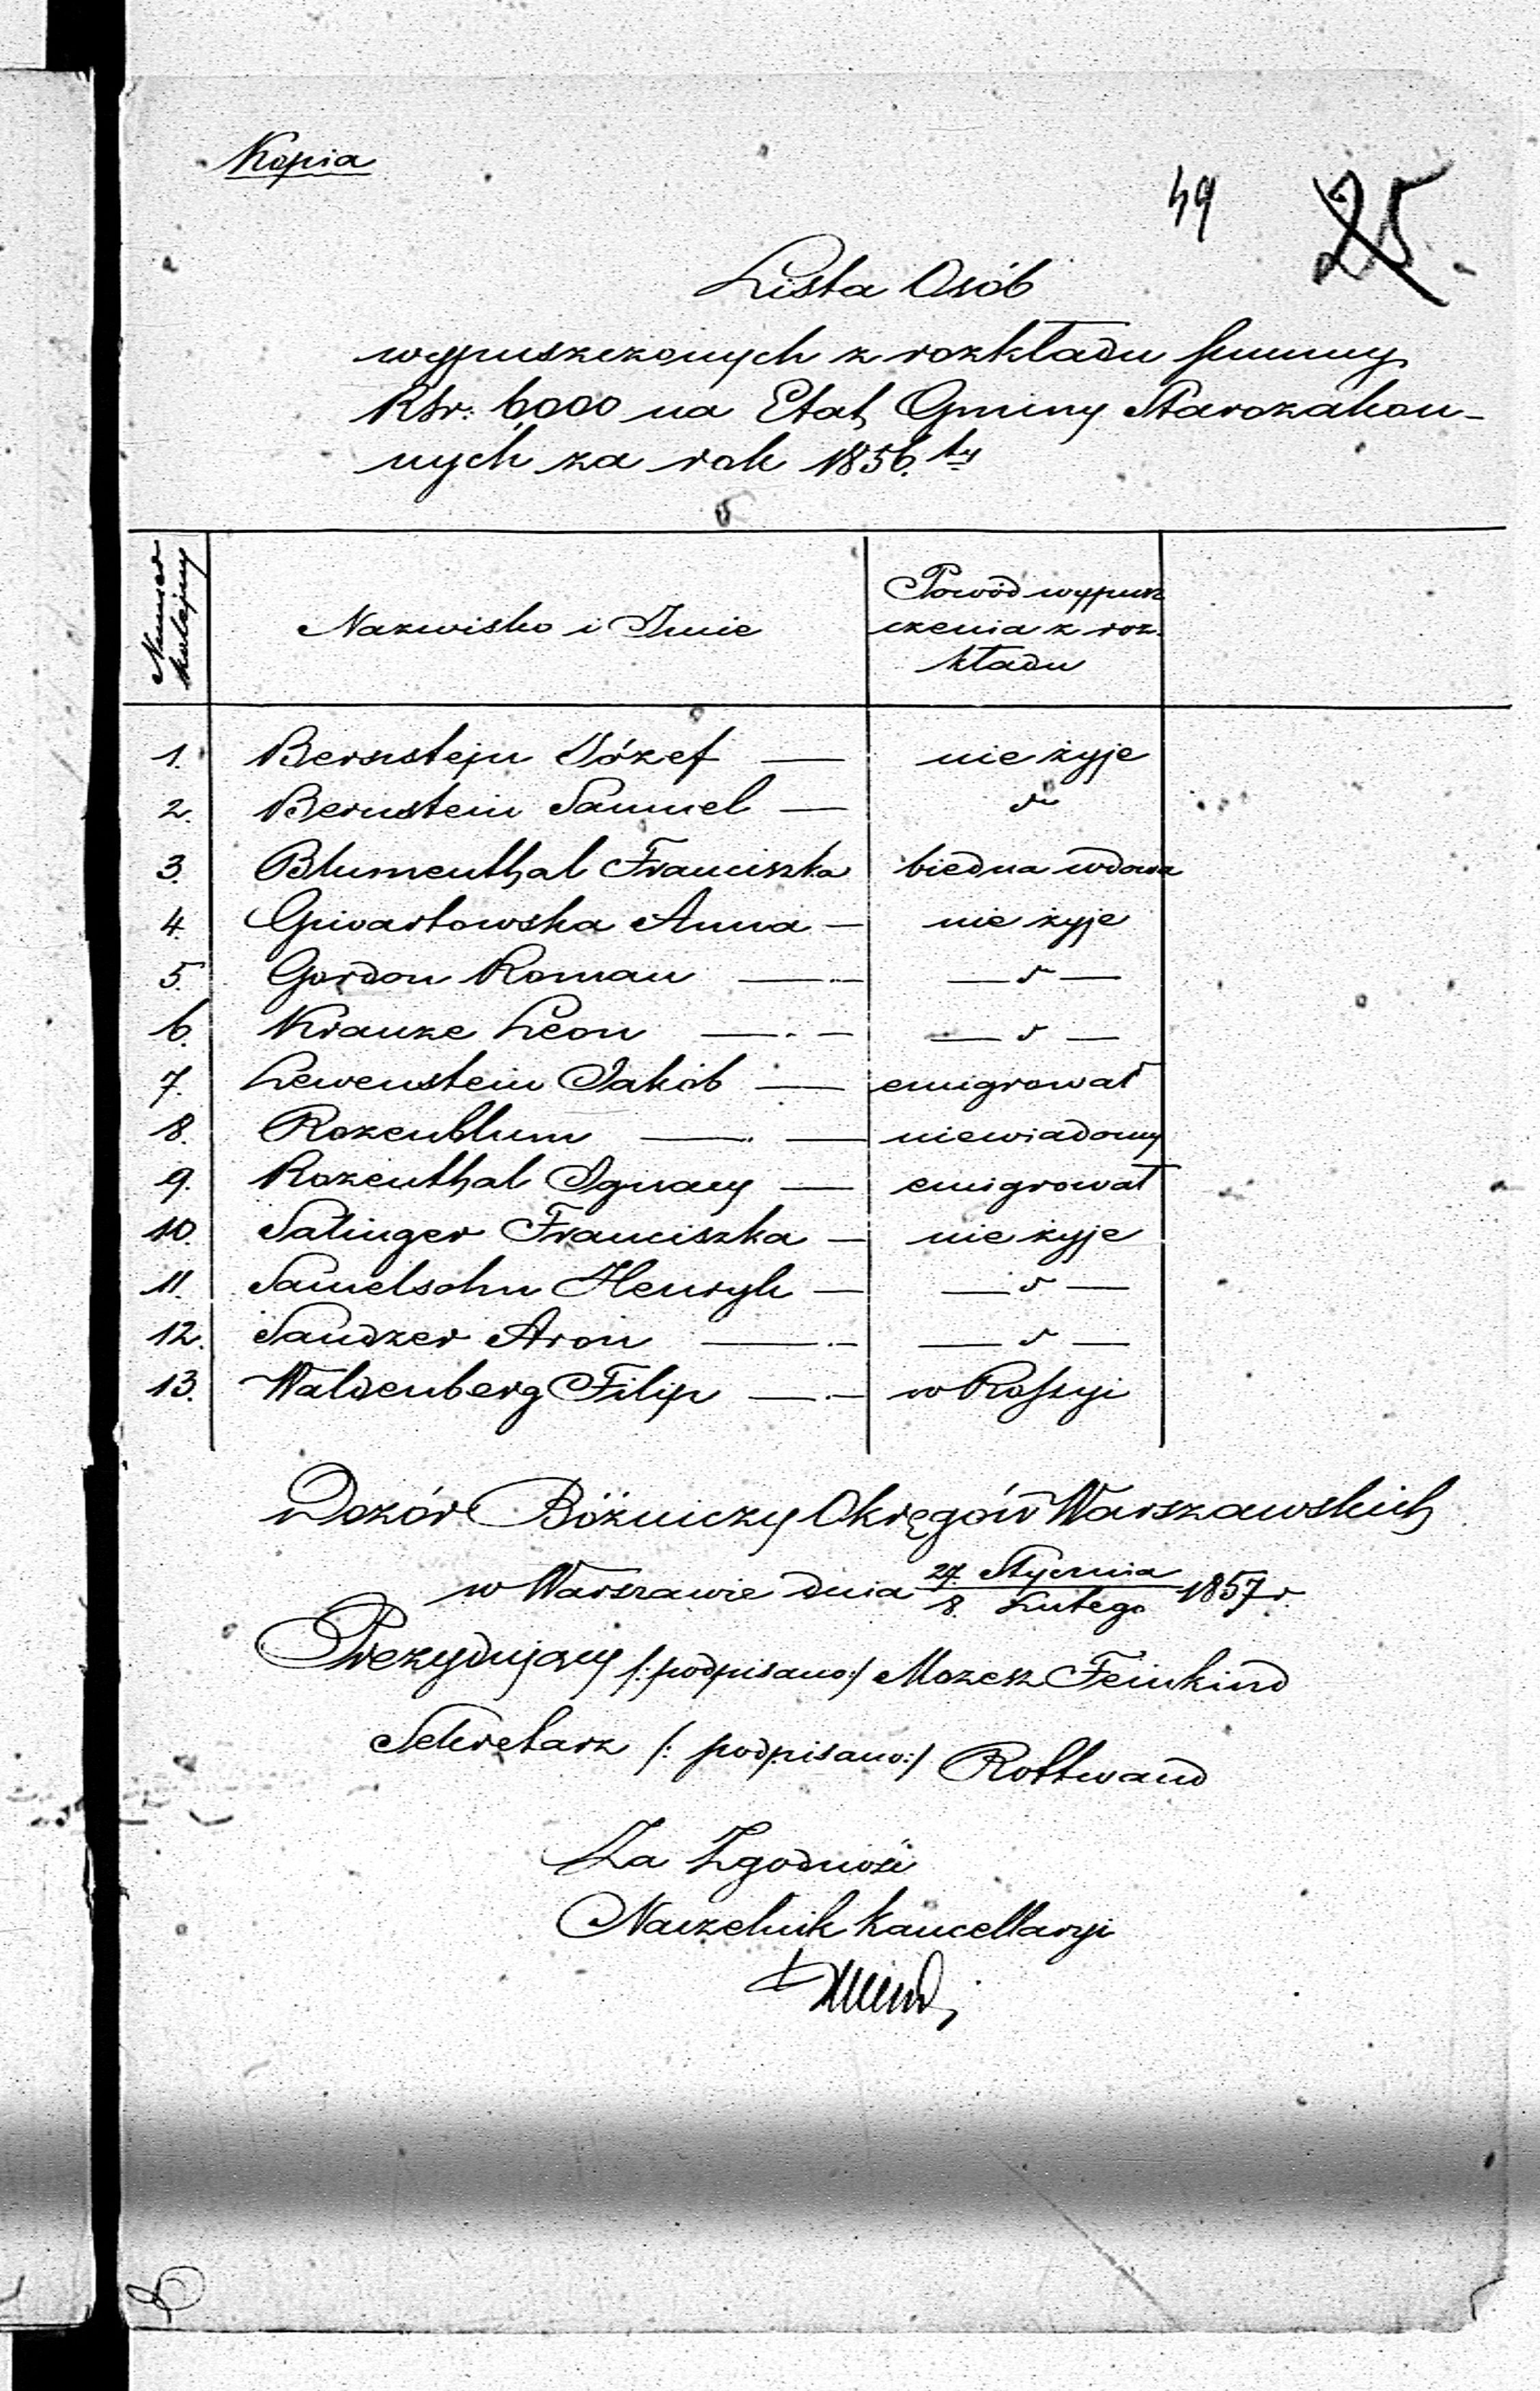 Kopia
49 25
Lista Osób
wypuszczonych z rozkładu summy
Rsr. 6000 na Etat Gminy Starozakon-
nych za rok 1856. ty
Numer kolejny
Nazwisko i Imie
Powód wypusz
czenia z roz-
kładu
1. Bernstejn Józef — nie żyje
2. Bernstein Samuel —
3. Blumenthal Franciszka biedna wdowa
4. Anna — nie żyje
5. Gordon Roman — —
6. Krauze Leon — — —
7. Lewenstein Jakób — emigrował
8. Rozenblum — — niewiadomy
9. Rozenthal Ignacy — emigrował
10. Satinger Franciszka — nie żyje
11. Samelsohn Henryk — — —
12. Sandzer Aron — — —
13. Waldenberg Filip — w Rossyi
Dozór Bóżniczy Okręgów Warszawskich
w Warszawie dnia 27. Stycznia / 8. Lutego 1857 r.
Prezydujący /:podpisano:/ Mozesz Feinkind
Sekretarz /: podpisano:/ Rottwand
Za Zgodność
Naczelnik Kancellaryi